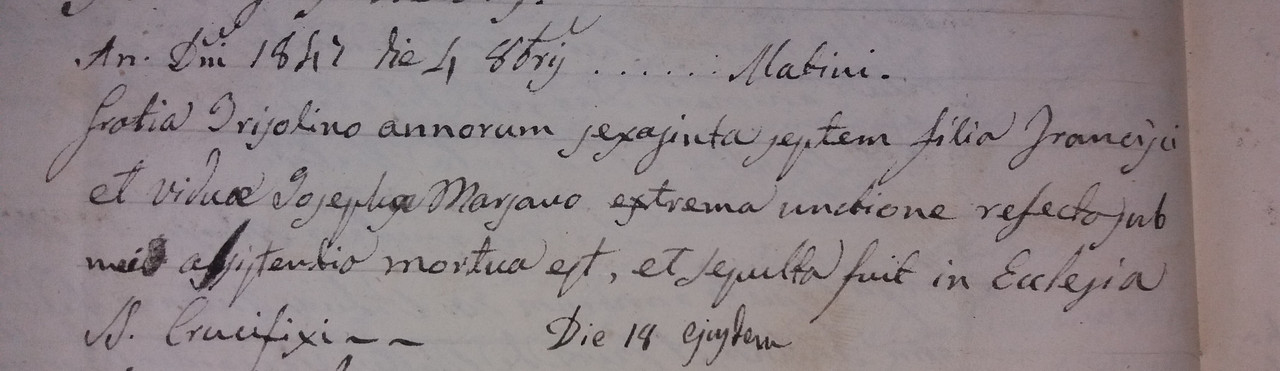 An. Dñi 1847 die 4 8brij . . . . . . Matini.
Gratia Trisolino annorum sexaginta septem filia Francisci
et viduæ Josephæ Marsano extrema unctione refecta sub
mei assistentia mortua est, et sepulta fuit in Ecclesia
SS. Crucifixi – – Die 18 ejusdem